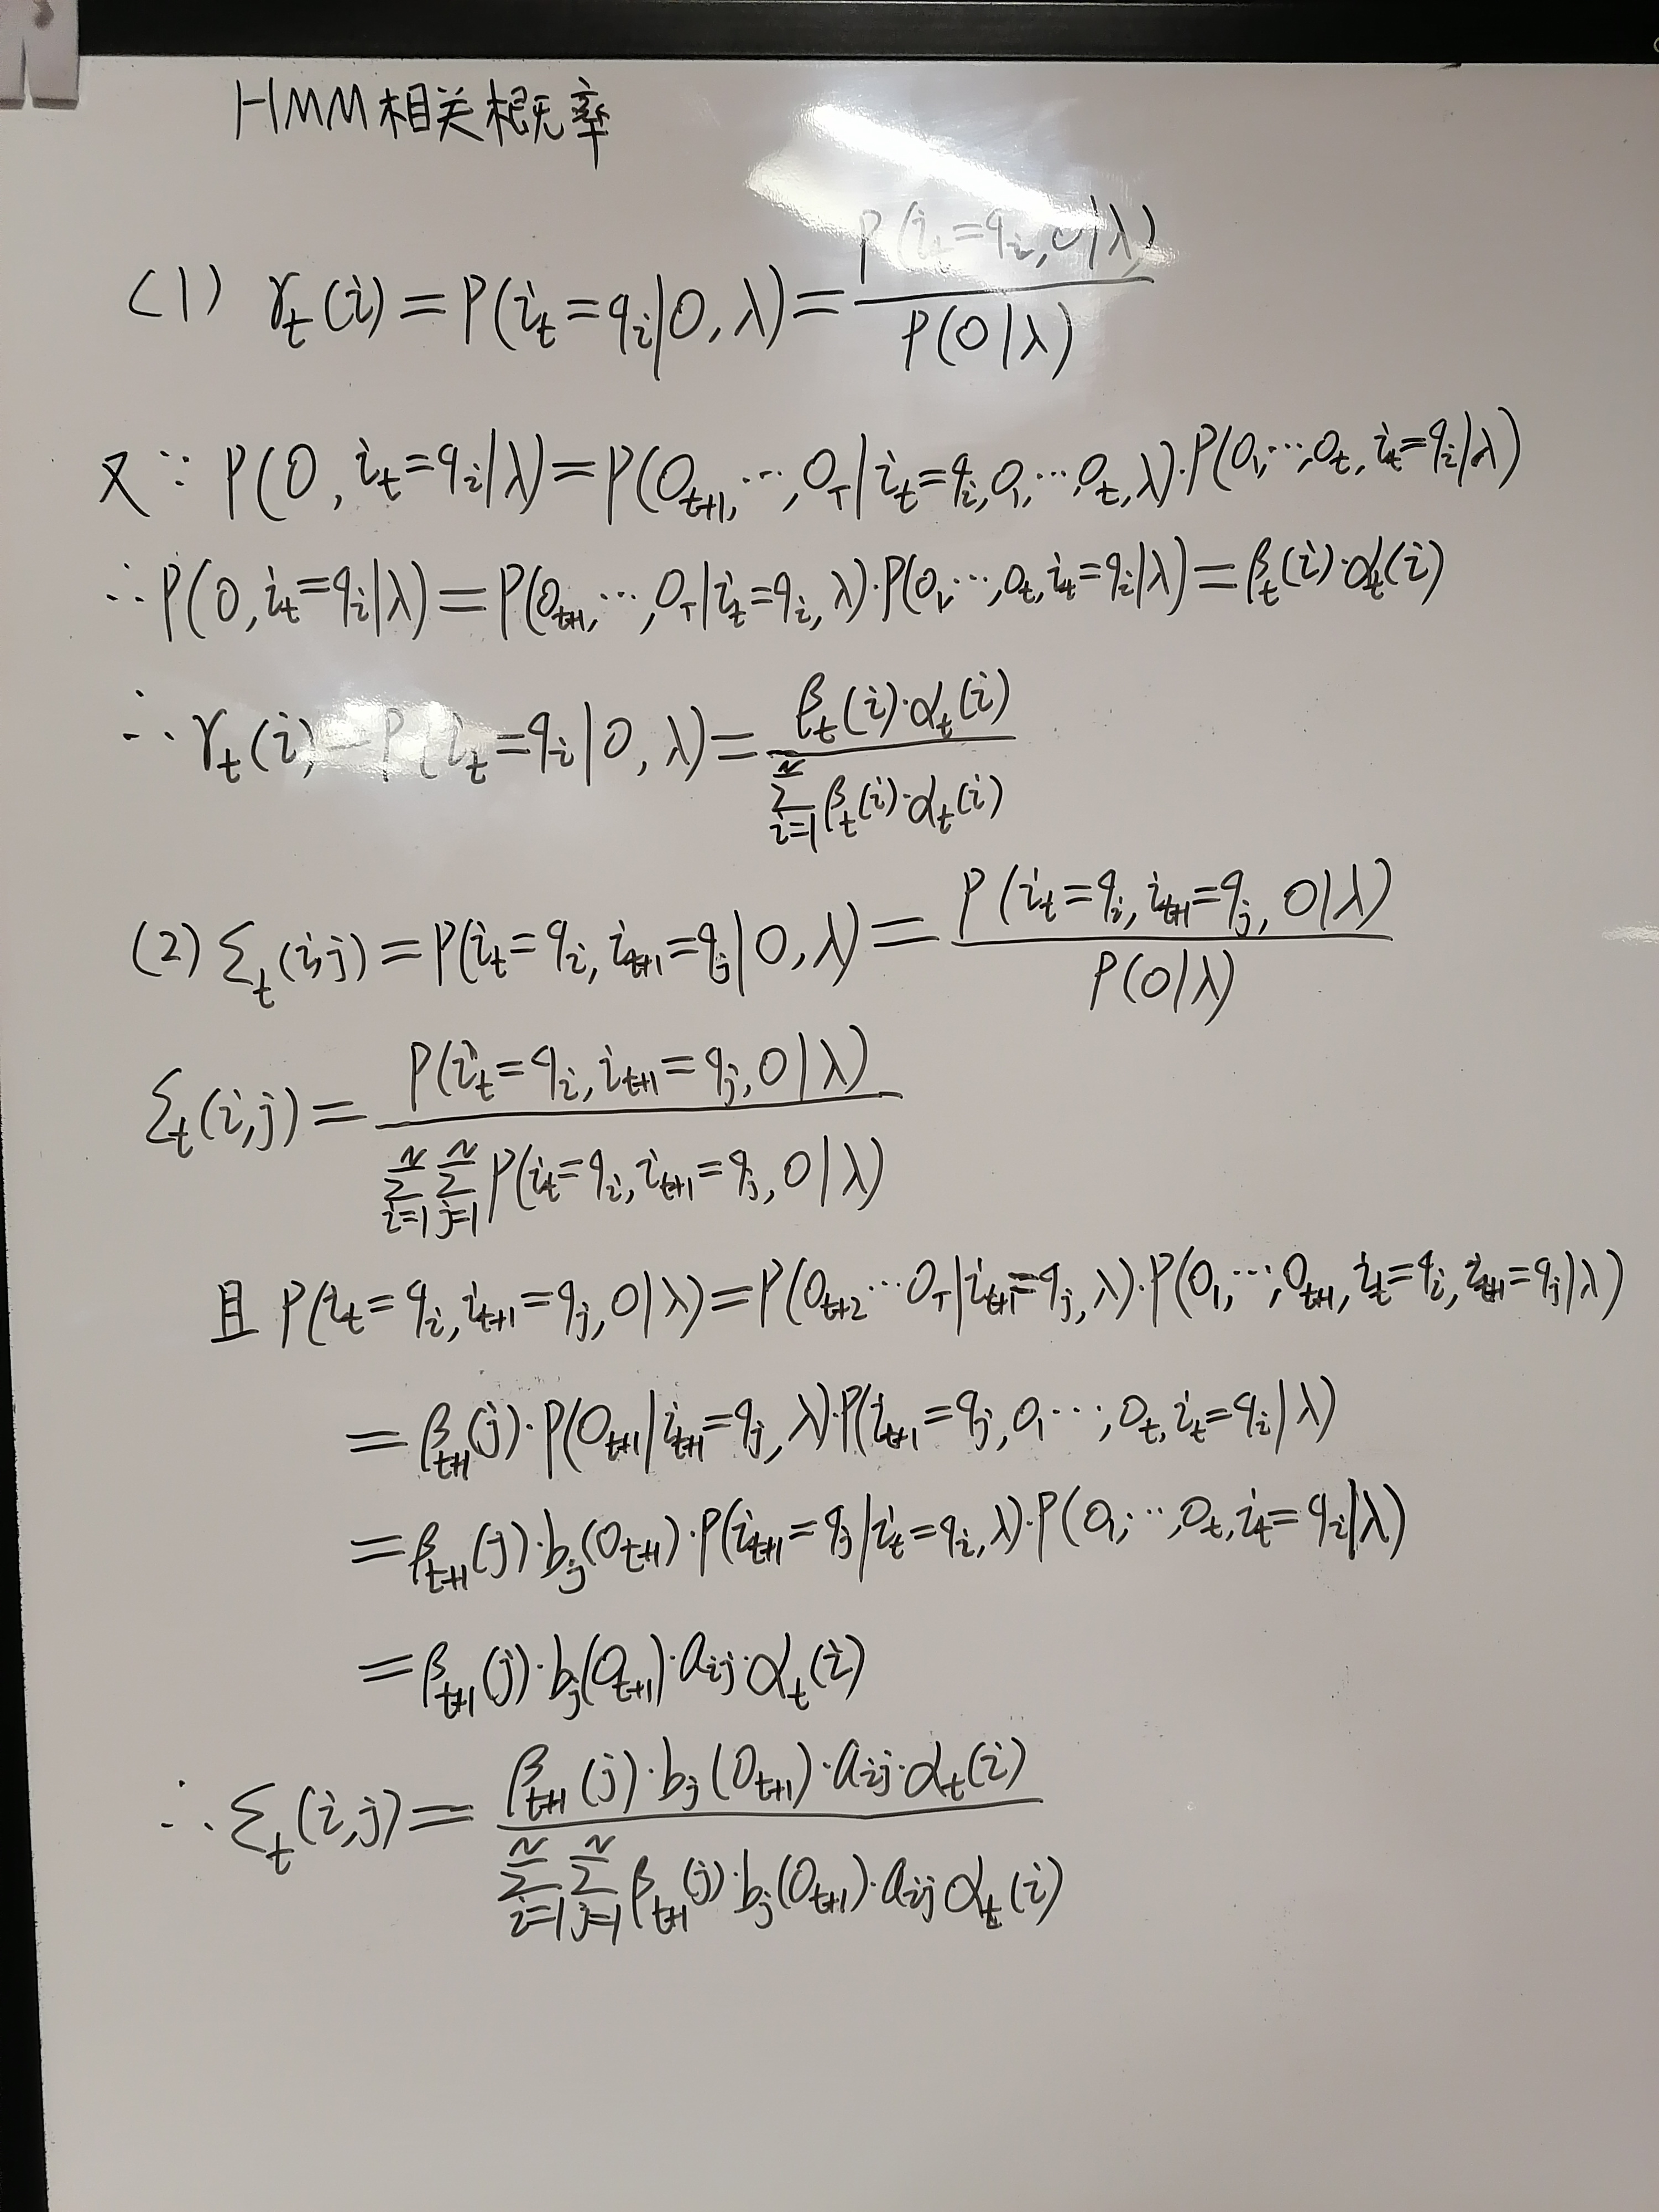 HMM相关概率
(1) γ_t(i) = P(i_t = q_i | O, λ) = P(i_t = q_i, O | λ) / P(O | λ)
又∵ P(O, i_t = q_i | λ) = P(O_{t+1}, …, O_T | i_t = q_i, O_1, …, O_t, λ) · P(O_1, …, O_t, i_t = q_i | λ)
∴ P(O, i_t = q_i | λ) = P(O_{t+1}, …, O_T | i_t = q_i, λ) · P(O_1, …, O_t, i_t = q_i | λ) = β_t(i) · α_t(i)
∴ γ_t(i) = P(i_t = q_i | O, λ) = β_t(i) · α_t(i) / ∑_{i=1}^{N} β_t(i) · α_t(i)
(2) Σ_t(i,j) = P(i_t = q_i, i_{t+1} = q_j | O, λ) = P(i_t = q_i, i_{t+1} = q_j, O | λ) / P(O | λ)
Σ_t(i,j) = P(i_t = q_i, i_{t+1} = q_j, O | λ) / ∑_{i=1}^{N} ∑_{j=1}^{N} P(i_t = q_i, i_{t+1} = q_j, O | λ)
且 P(i_t = q_i, i_{t+1} = q_j, O | λ) = P(O_{t+2} … O_T | i_{t+1} = q_j, λ) · P(O_1, …, O_{t+1}, i_t = q_i, i_{t+1} = q_j | λ)
= β_{t+1}(j) · P(O_{t+1} | i_{t+1} = q_j, λ) · P(i_{t+1} = q_j, O_1 …, O_t, i_t = q_i | λ)
= β_{t+1}(j) · b_j(O_{t+1}) · P(i_{t+1} = q_j | i_t = q_i, λ) · P(O_1, …, O_t, i_t = q_i | λ)
= β_{t+1}(j) · b_j(O_{t+1}) · a_{ij} · α_t(i)
∴ Σ_t(i,j) = β_{t+1}(j) · b_j(O_{t+1}) · a_{ij} · α_t(i) / ∑_{i=1}^{N} ∑_{j=1}^{N} β_{t+1}(j) · b_j(O_{t+1}) · a_{ij} α_t(i)